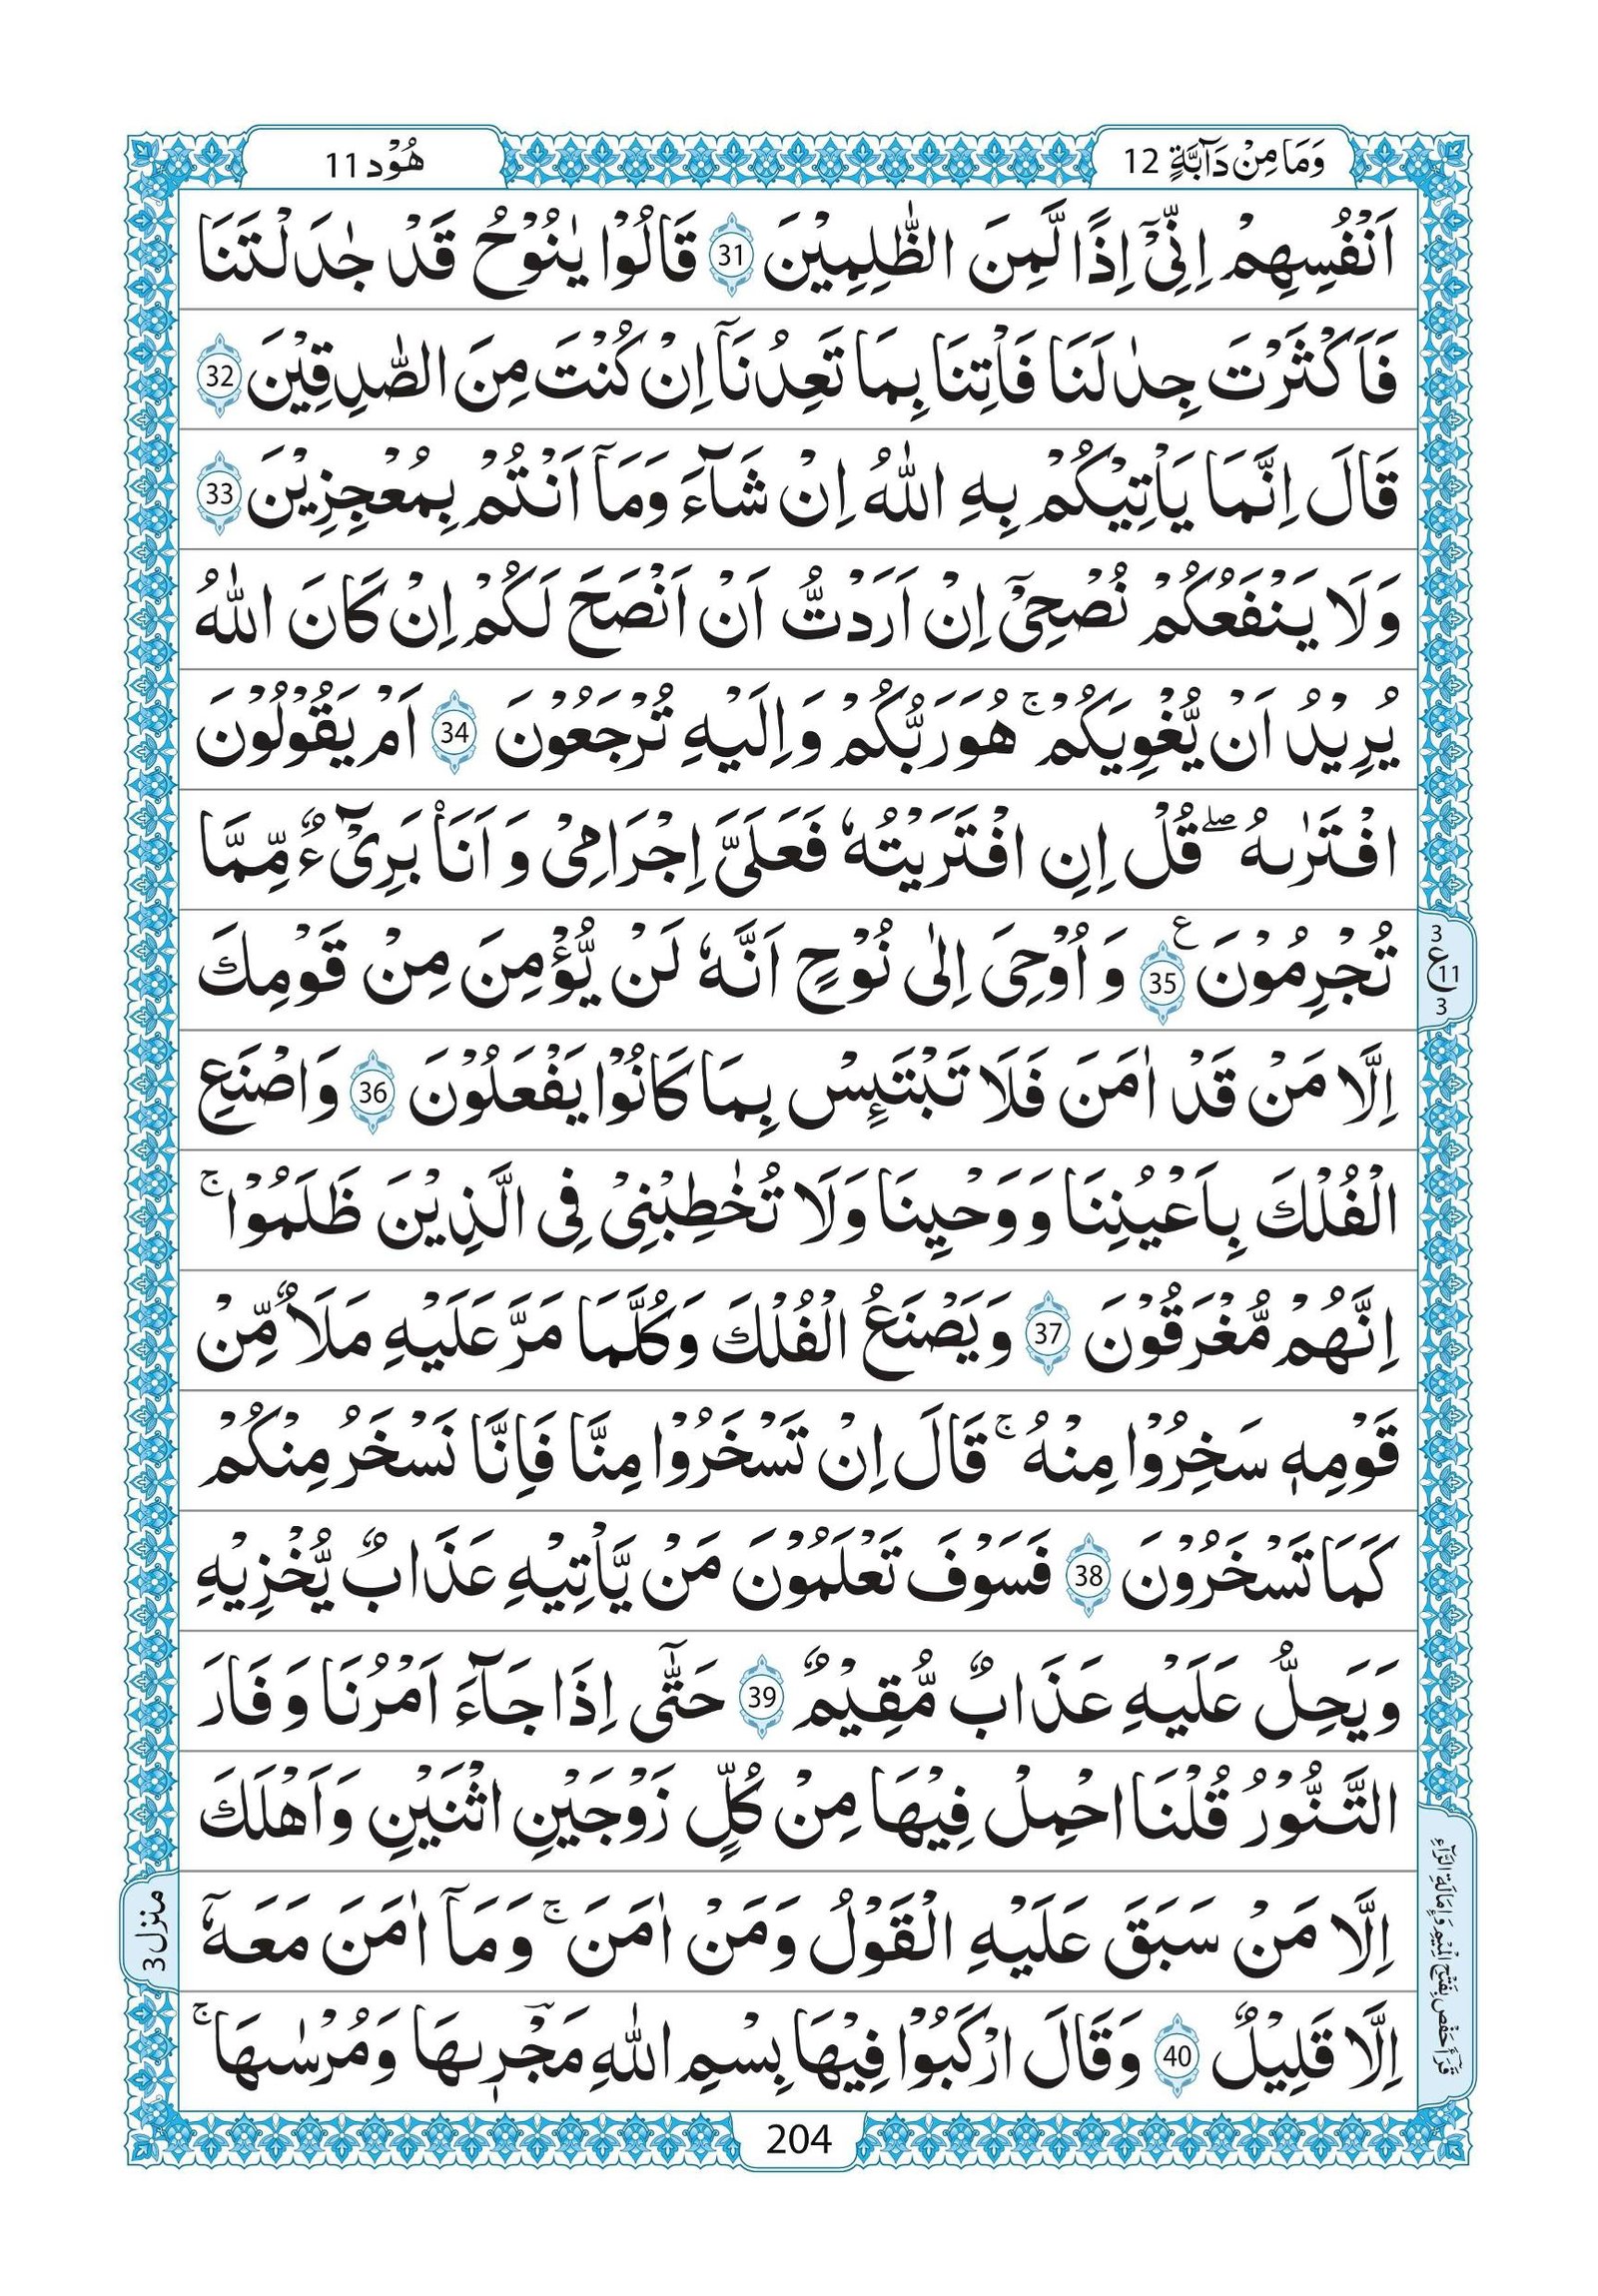 وَمَا مِنْ دَآبَّةٍ 12
هُوْد 11
اَنْفُسِهِمْ اِنِّیْۤ اِذًا لَّمِنَ الظّٰلِمِیْنَ 31 قَالُوْا یٰنُوْحُ قَدْ جٰدَلْتَنَا
فَاَكْثَرْتَ جِدٰلَنَا فَاْتِنَا بِمَا تَعِدُنَاۤ اِنْ كُنْتَ مِنَ الصّٰدِقِیْنَ 32
قَالَ اِنَّمَا یَاْتِیْكُمْ بِهِ اللّٰهُ اِنْ شَآءَ وَمَاۤ اَنْتُمْ بِمُعْجِزِیْنَ 33
وَلَا یَنْفَعُكُمْ نُصْحِیْۤ اِنْ اَرَدْتُّ اَنْ اَنْصَحَ لَكُمْ اِنْ كَانَ اللّٰهُ
یُرِیْدُ اَنْ یُّغْوِیَكُمْ ۚ هُوَ رَبُّكُمْ وَاِلَیْهِ تُرْجَعُوْنَ 34 اَمْ یَقُوْلُوْنَ
افْتَرٰىهُ ۖ قُلْ اِنِ افْتَرَیْتُهٗ فَعَلَیَّ اِجْرَامِیْ وَ اَنَا۠ بَرِیْٓءٌ مِّمَّا
3
تُجْرِمُوْنَ ع 35 وَ اُوْحِیَ اِلٰی نُوْحٍ اَنَّهٗ لَنْ یُّؤْمِنَ مِنْ قَوْمِكَ
ع 11
3
اِلَّا مَنْ قَدْ اٰمَنَ فَلَا تَبْتَئِسْ بِمَا كَانُوْا یَفْعَلُوْنَ 36 وَاصْنَعِ
الْفُلْكَ بِاَعْیُنِنَا وَوَحْیِنَا وَلَا تُخَاطِبْنِیْ فِی الَّذِیْنَ ظَلَمُوْا ۚ
اِنَّهُمْ مُّغْرَقُوْنَ 37 وَیَصْنَعُ الْفُلْكَ وَكُلَّمَا مَرَّ عَلَیْهِ مَلَاٌ مِّنْ
قَوْمِهٖ سَخِرُوْا مِنْهُ ۚ قَالَ اِنْ تَسْخَرُوْا مِنَّا فَاِنَّا نَسْخَرُ مِنْكُمْ
كَمَا تَسْخَرُوْنَ 38 فَسَوْفَ تَعْلَمُوْنَ مَنْ یَّاْتِیْهِ عَذَابٌ یُّخْزِیْهِ
وَیَحِلُّ عَلَیْهِ عَذَابٌ مُّقِیْمٌ 39 حَتّٰۤی اِذَا جَآءَ اَمْرُنَا وَ فَارَ
التَّنُّوْرُ قُلْنَا احْمِلْ فِیْهَا مِنْ كُلٍّ زَوْجَیْنِ اثْنَیْنِ وَاَهْلَكَ
اِلَّا مَنْ سَبَقَ عَلَیْهِ الْقَوْلُ وَمَنْ اٰمَنَ ۚ وَمَاۤ اٰمَنَ مَعَهٗۤ
اِلَّا قَلِیْلٌ 40 وَقَالَ ارْكَبُوْا فِیْهَا بِسْمِ اللّٰهِ مَجْرٖىهَا وَمُرْسٰىهَا ۚ
قَرَأَ حَفْص بِفَتْحِ الْمِیْمِ وَاِمَالَةِ الرَّاءِ
منزل 3
204